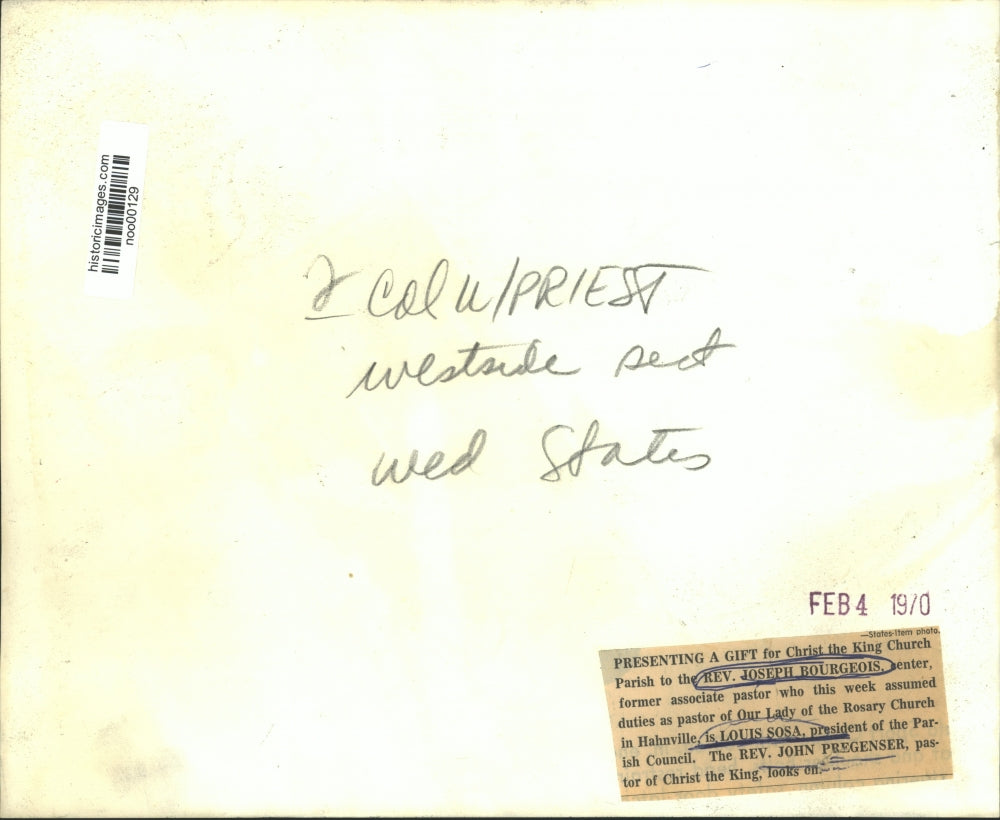 historicimages.com
noo00129
2 Col w/PRIEST
westside sect
wed States
FEB 4 1970
—States-Item photo.
PRESENTING A GIFT for Christ the King Church
Parish to the REV. JOSEPH BOURGEOIS, center,
former associate pastor who this week assumed
duties as pastor of Our Lady of the Rosary Church
in Hahnville, is LOUIS SOSA, president of the Par-
ish Council. The REV. JOHN PREGENSER, pas-
tor of Christ the King, looks on.